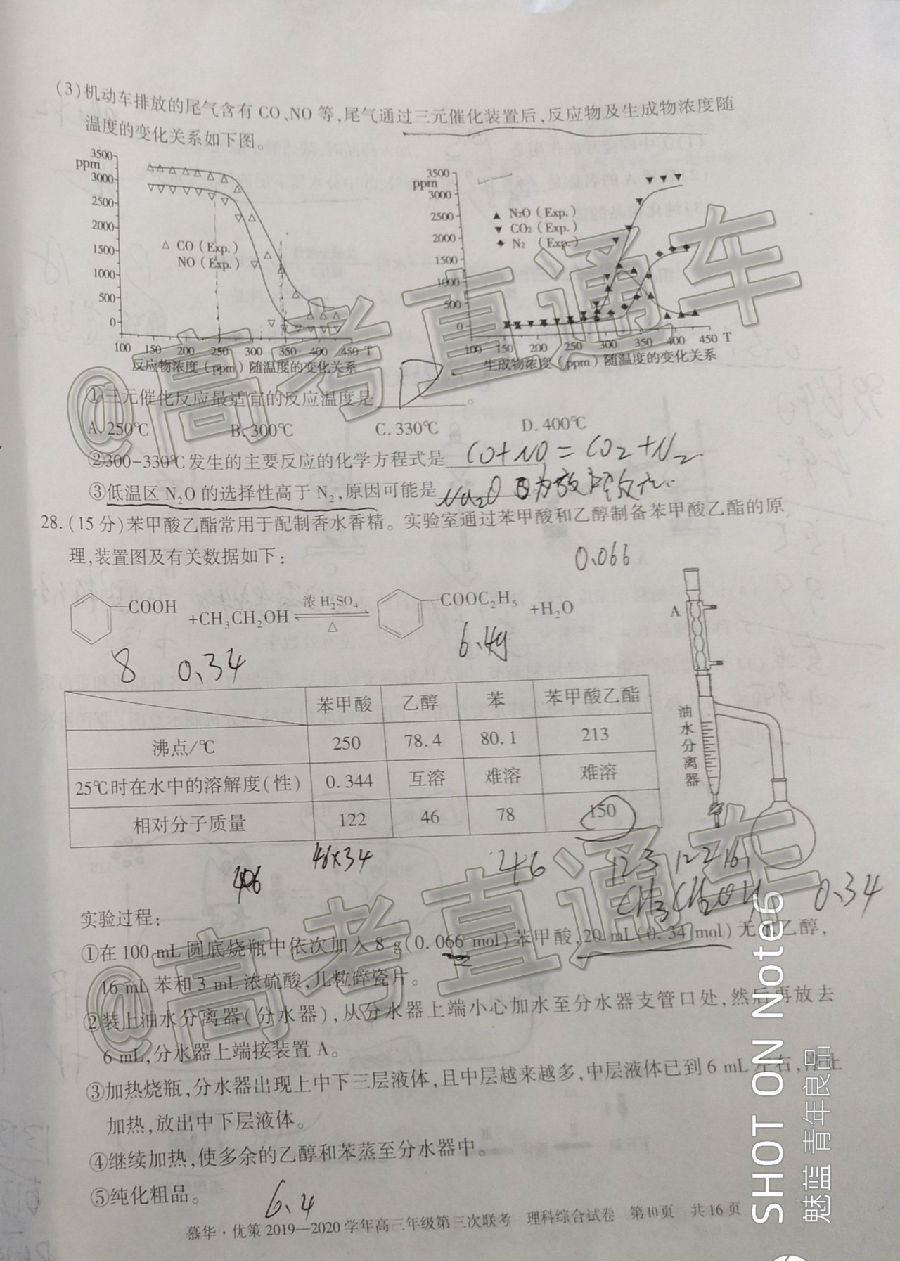 (3)机动车排放的尾气含有 CO、NO 等,尾气通过三元催化装置后,反应物及生成物浓度随
温度的变化关系如下图。
3500
ppm
3000
2500
2000
1500
1000
500
0
△ CO (Exp.)
▽ NO (Exp.)
100 150 200 250 300 350 400 450 T
反应物浓度(ppm)随温度的变化关系
3500
ppm
3000
2500
2000
1500
1000
500
0
▲ N₂O (Exp.)
▼ CO₂ (Exp.)
◆ N₂ (Exp.)
100 150 200 250 300 350 400 450 T
生成物浓度(ppm)随温度的变化关系
①三元催化反应最适宜的反应温度是 D 。
A. 250℃ B. 300℃ C. 330℃ D. 400℃
②300-330℃发生的主要反应的化学方程式是 CO+NO=CO2+N2 .
③低温区 N₂O 的选择性高于 N₂,原因可能是
28. (15 分)苯甲酸乙酯常用于配制香水香精。实验室通过苯甲酸和乙醇制备苯甲酸乙酯的原
理,装置图及有关数据如下:
0.066
COOH +CH₃CH₂OH 浓 H₂SO₄ △ COOC₂H₅ +H₂O
8 0.34 6.4g
A
油水分离器
苯甲酸 乙醇 苯 苯甲酸乙酯
沸点/℃ 250 78.4 80.1 213
25℃时在水中的溶解度(性) 0.344 互溶 难溶 难溶
相对分子质量 122 46 78 150
46×34 46
CH3CH2OH 0.34
实验过程:
①在 100 mL 圆底烧瓶中依次加入 8 g(0.066 mol)苯甲酸,20 mL(0.34mol)无水乙醇,
16 mL 苯和 3 mL 浓硫酸,几粒碎瓷片。
②装上油水分离器(分水器),从分水器上端小心加水至分水器支管口处,然后再放去
6 mL,分水器上端接装置 A。
③加热烧瓶,分水器出现上中下三层液体,且中层越来越多,中层液体已到 6 mL 左右,停止
加热,放出中下层液体。
④继续加热,使多余的乙醇和苯蒸至分水器中。
⑤纯化粗品。
6.4
慕华·优策 2019—2020 学年高三年级第三次联考 理科综合试卷 第10页 共16页
@高考直通车
@高考直通车
SHOT ON Note6
魅蓝 青年良品